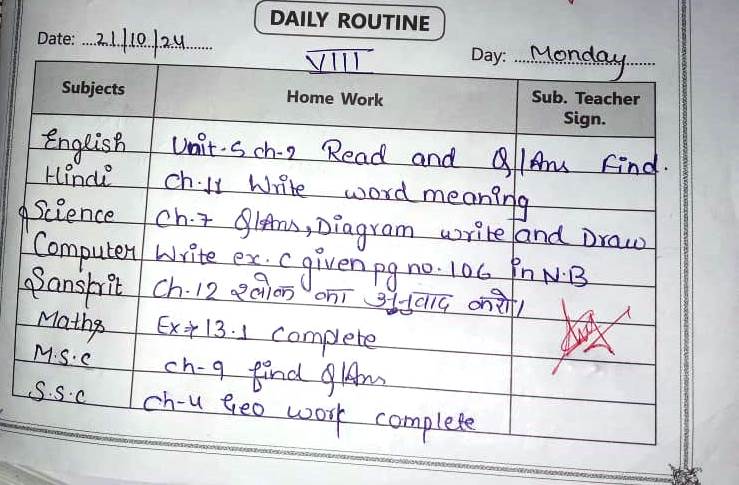 DAILY ROUTINE
Date: 21/10/24
VIII
Day: Monday
Subjects Home Work Sub. Teacher Sign.
English Unit-5 ch-2 Read and Q/Ans find.
Hindi Ch-11 Write word meaning
Science Ch-7 Q/Ans, Diagram write and Draw
Computer Write ex. C given pg no. 106 in N.B
Sanskrit Ch-12 श्लोक का अनुवाद करो।
Maths Ex→13.1 complete
M.S.C ch-9 find Q/Ans
S.S.C Ch-4 Geo work complete